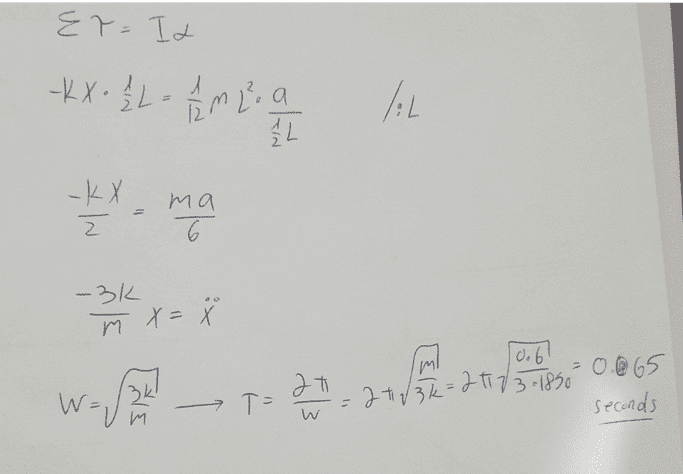 Στ = Iα
-kx · 1/2 L = 1/12 m L² · a / (1/2 L) /:L
-kx/2 = ma/6
-3k/m x = ẍ
W = √(3k/m) → T = 2π/W = 2π√(m/3k) = 2π√(0.6/(3·1850)) = 0.065 seconds